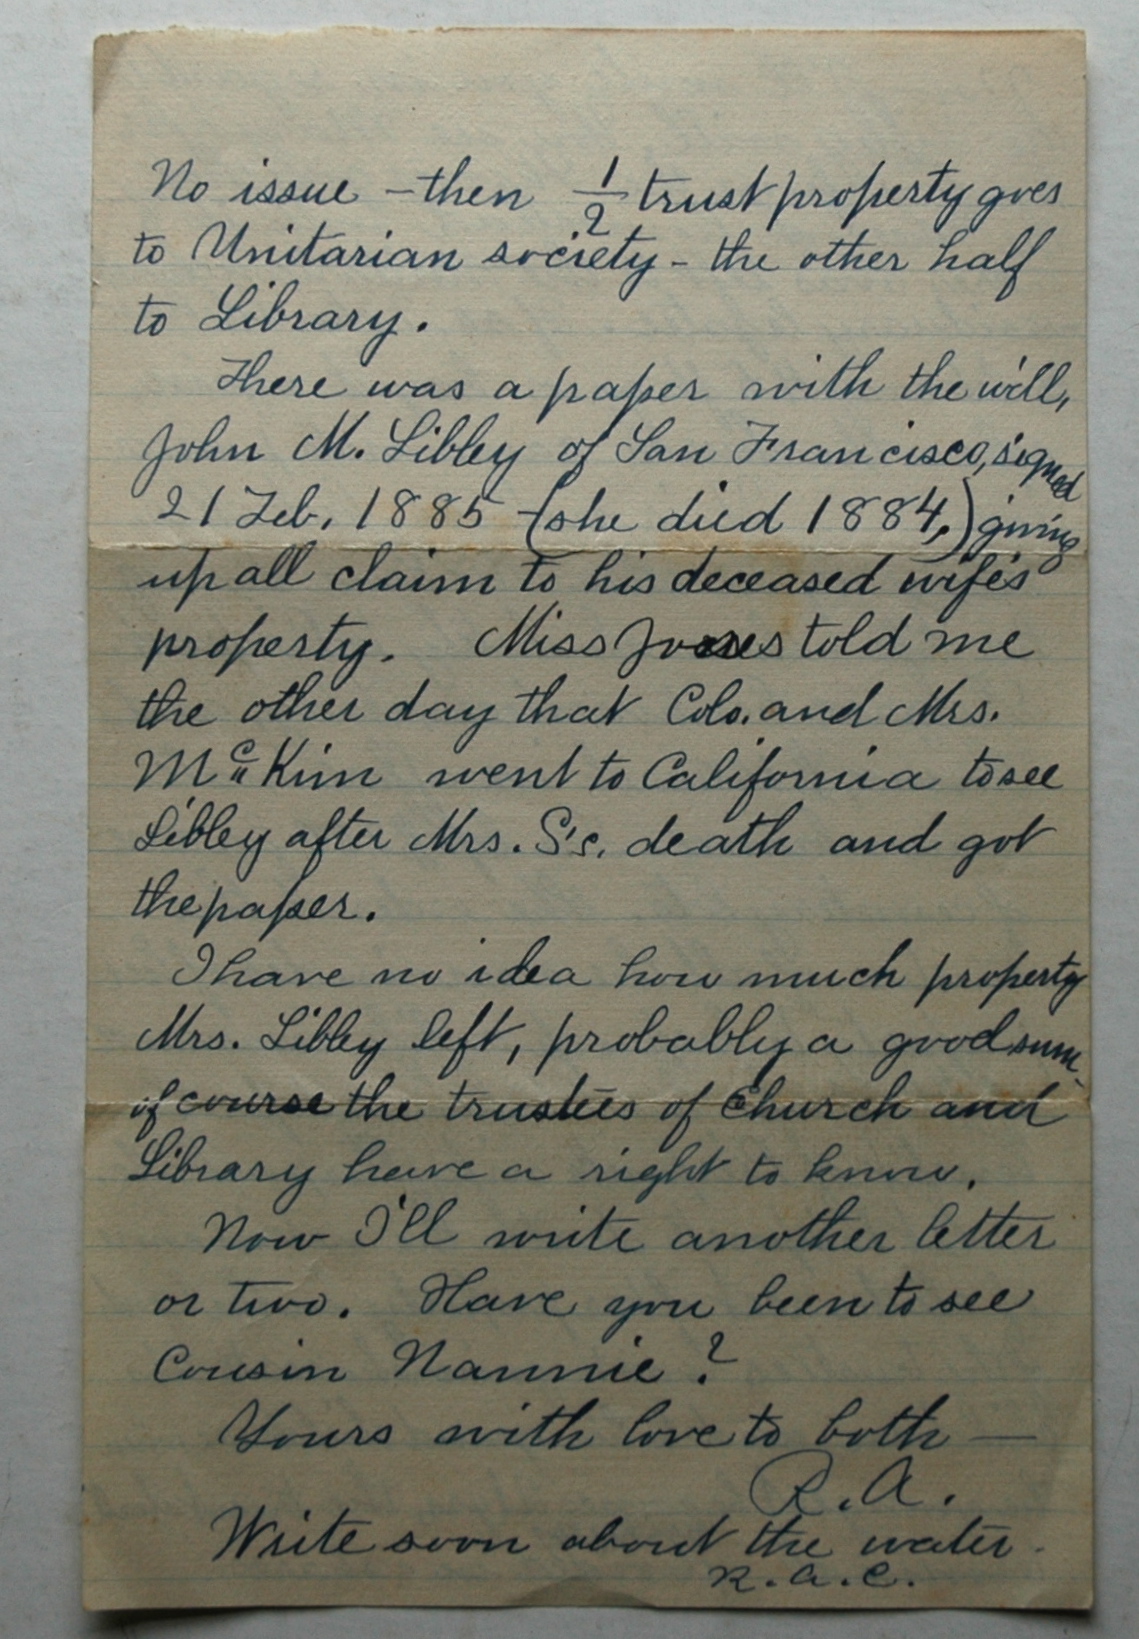 No issue – then 1/2 trust property goes
to Unitarian society – the other half
to Library.
There was a paper with the will,
John M. Libbey of San Francisco, signed
21 Feb. 1885 – (she died 1884,) giving
up all claim to his deceased wife's
property. Miss Jones told me
the other day that Colo. and Mrs.
McKim went to California to see
Libbey after Mrs. S's. death and got
the paper.
I have no idea how much property
Mrs. Libbey left, probably a good sum –
of course the trustees of Church and
Library have a right to know.
Now I'll write another letter
or two. Have you been to see
Cousin Nannie?
Yours with love to both —
R. A.
Write soon about the water.
R. A. C.